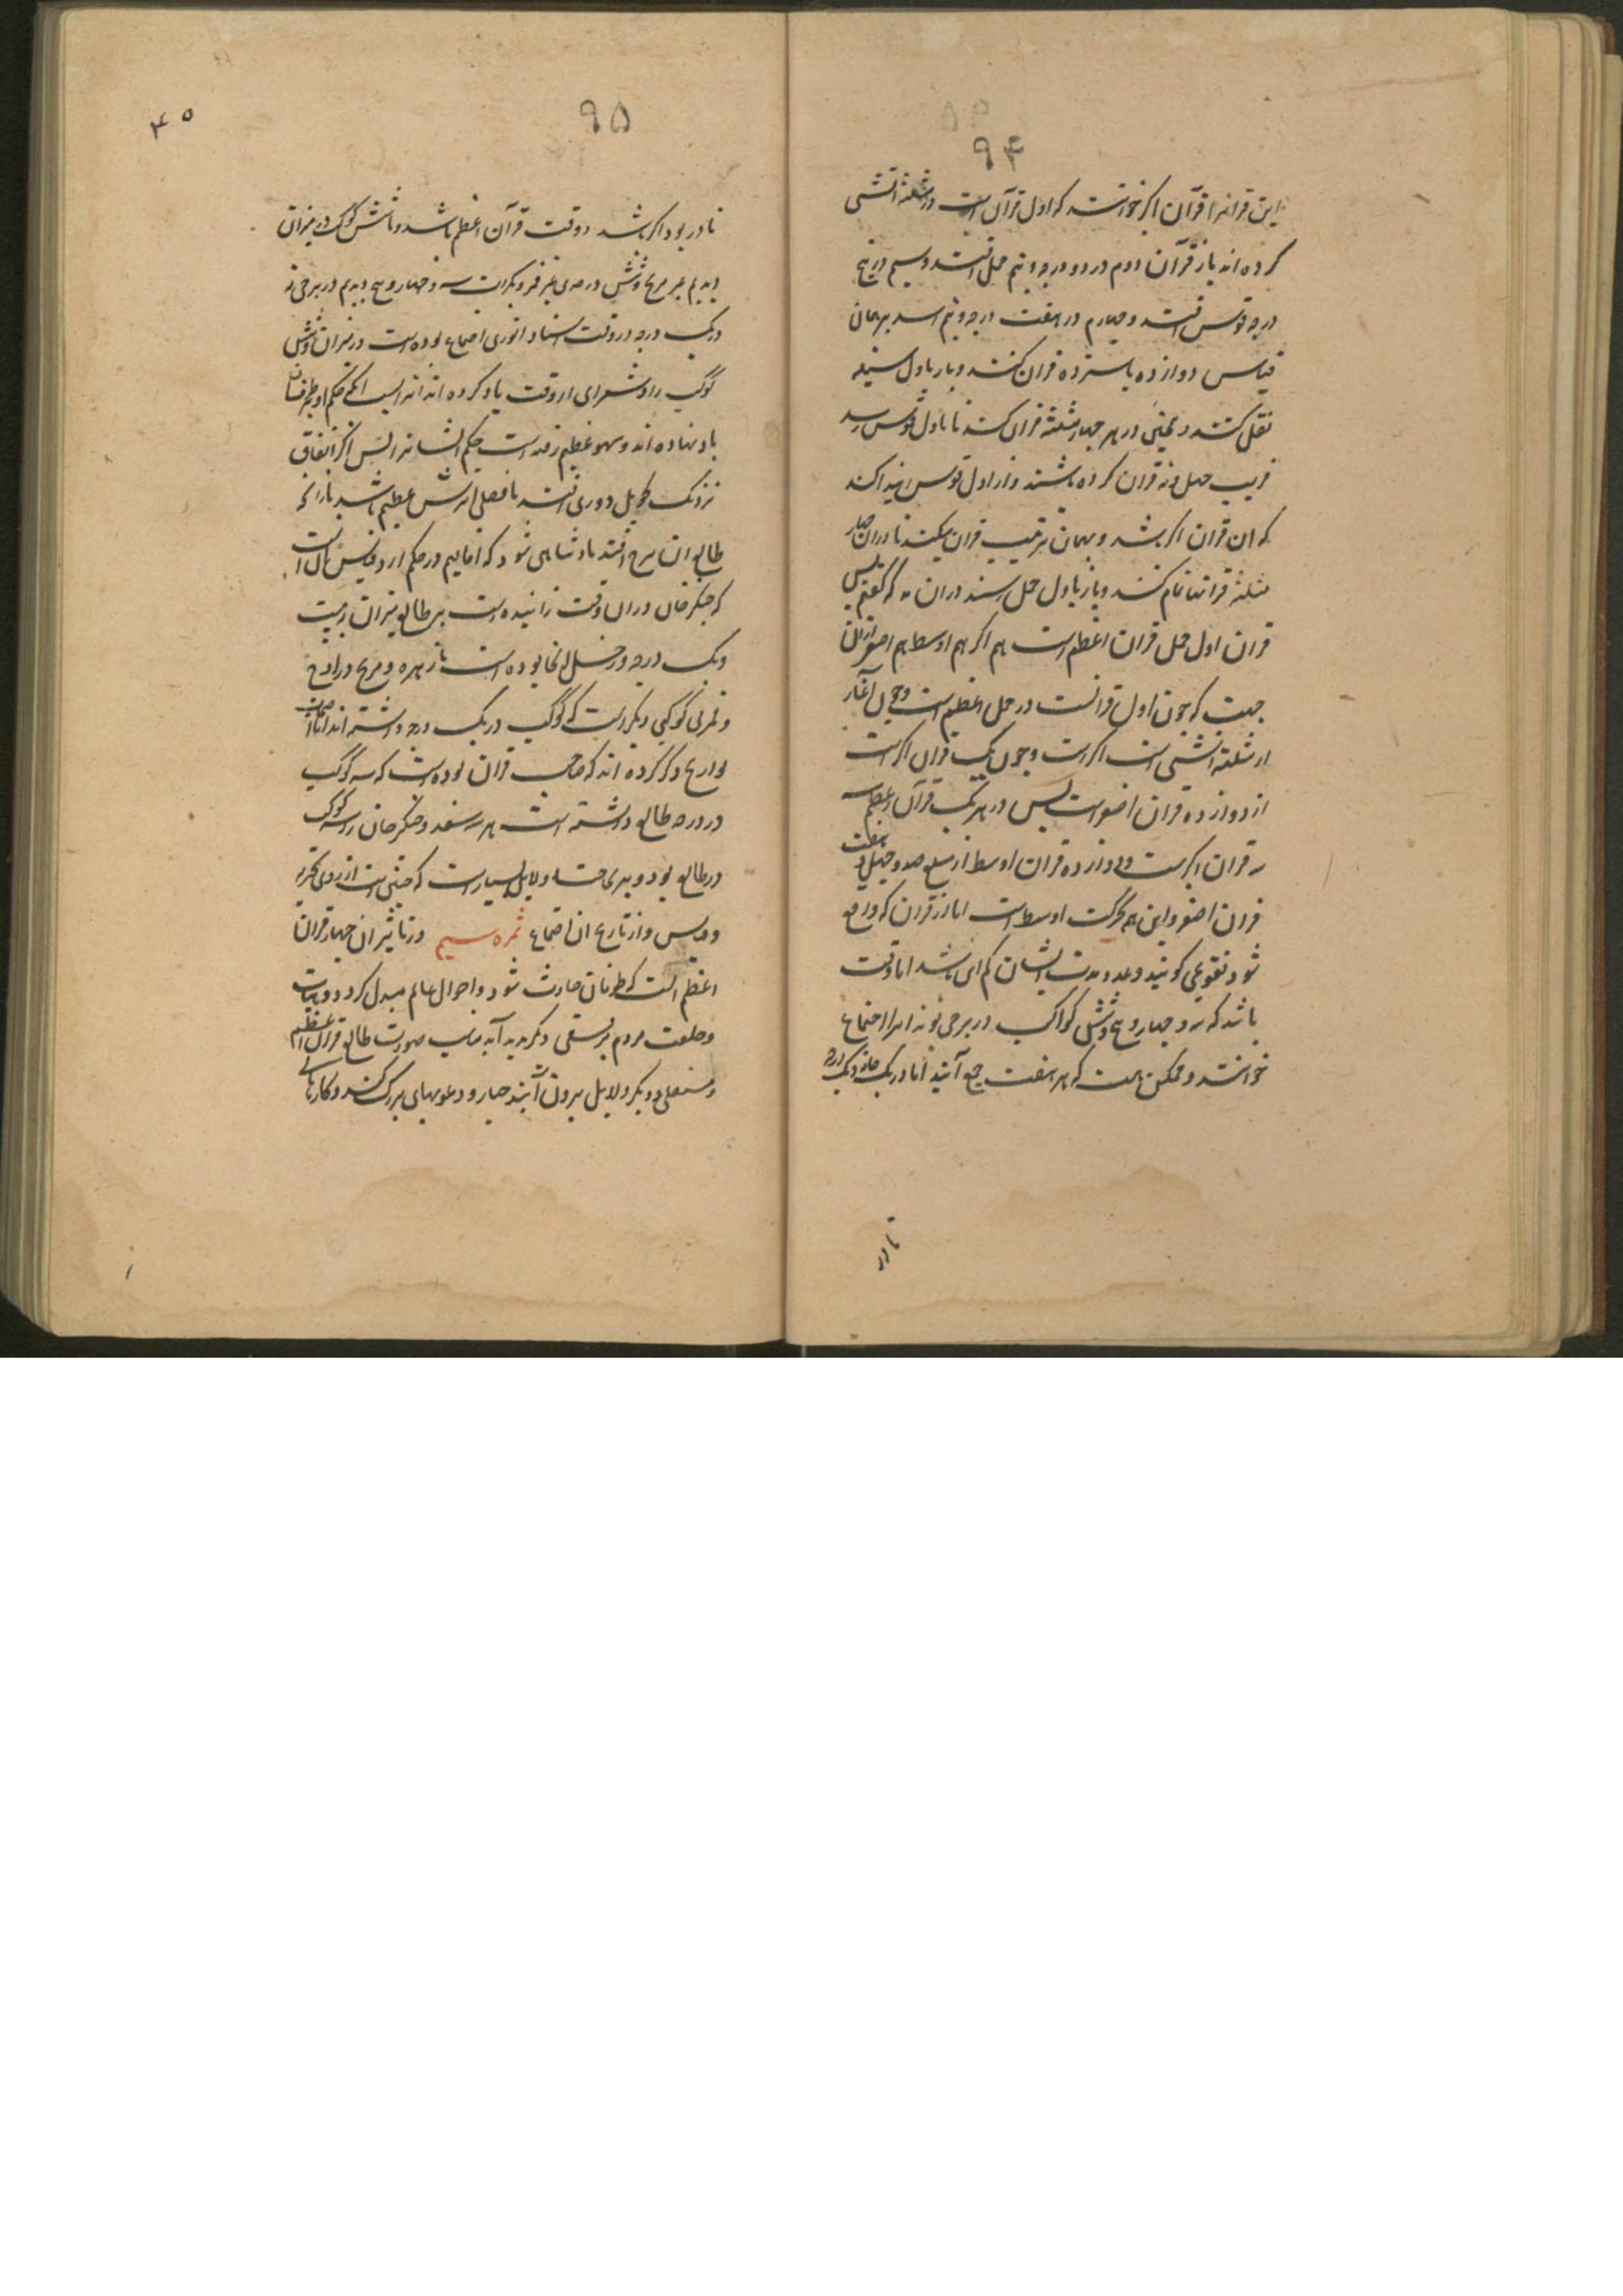 ۹۴
این قرانرا قرآن اکبر خوانند که اول قرآن است در مثلثه آتشی
کرده اند باز قرآن دوم در دو درجه و نیم حمل افتد و سیم در پنج
درجه قوس افتد و چهارم در هفت درجه و نیم اسد بر همان
قیاس دوازده یا سیزده قران کنند و باز باول سنبله
نقل کنند و همچنین در هر چهار مثلثه قران کنند تا باول قوس رسد
قریب چهل و نه قران کرده باشند و از اول قوس ابتدا کند
که ان قران اکبر باشد و بهمان ترتیب قران میکنند تا دران چهار
مثلثه قرانها تمام کنند و باز باول حمل رسند دران مه که گفتیم پس
قران اول حمل قران اعظم است هم اکبر هم اوسط هم اصغر ازان
جهت که چون اول قرانست در حمل اعظم است و چون آغاز
از مثلثه آتشی است اکبر است و چون یک قران اکبر است
از دوازده قران اصغر است پس در هر یک قران اعظم سه
قران اکبرست و دوازده قران اوسط از مبلغ صد و چهل و هفت
قران اصغر و این هم حرکت اوسط است اما از قران که واقع
شود تقویمی گویند و عدد و مدت ایشان کم ای باشد اما وقت
باشد که سه و چهار و پنج و شش کواکب در برجی بوند انرا اجتماع
خوانند و ممکن است که هر هفت جمع آیند اما در یک خانه و یک درجه
نادر
۹۵
۴۵
نادر بود اگر باشد در وقت قرآن اعظم باشد و ما شش کوکب در میزان
دیدیم غیر مریخ و شش در جدی غیر قمر و بکرات سه و چهار و پنج دیدیم در برجی نه
در یک درجه در وقت استاد انوری اجتماع بوده است در میزان و شش
کوکب را و شعرای ان وقت یاد کرده اند اند حکم او بطوفان
باد نهاده اند و سهو عظیم رفته است حکم ایشانرا پس اگر اتفاق
نزدیک تحویل دوری افتد یا فصلی اثرش عظیم باشد یا انکه
طالع ان برج افتد پادشاهی شود که اقالیم در حکم ارد و قیاس انست
که چنگیز خان دران وقت زائیده است بر طالع میزان بیست
و یک درجه و زحل انجا بوده است با زهره و مریخ در اوج
و قمر بی کوکبی دیگر است که کوکب در یک درجه داشته اند اما
تواریخ ذکر کرده اند که صاحب قران بوده است که سه کوکب
در درجه طالع داشته است هر سه سعد و چنگیز خان را سه کوکب
در طالع بود و برین حساب دلایل بسیار است که مبنی است از روی تجربه
و قیاس و از تاریخ ان اجتماع ثمره سیم در تاثیر ان چهار قران
اعظم انست که طوفان حادث شود و احوال عالم مبدل گردد و هیات
و خلقت مردم بر نسقی دیگر پدید آید مناسب صورت طالع قران اعظم
و متغلبی و دیگر دلایل بیرون آیند جبار و دعویهای بزرگ کنند و کارهای